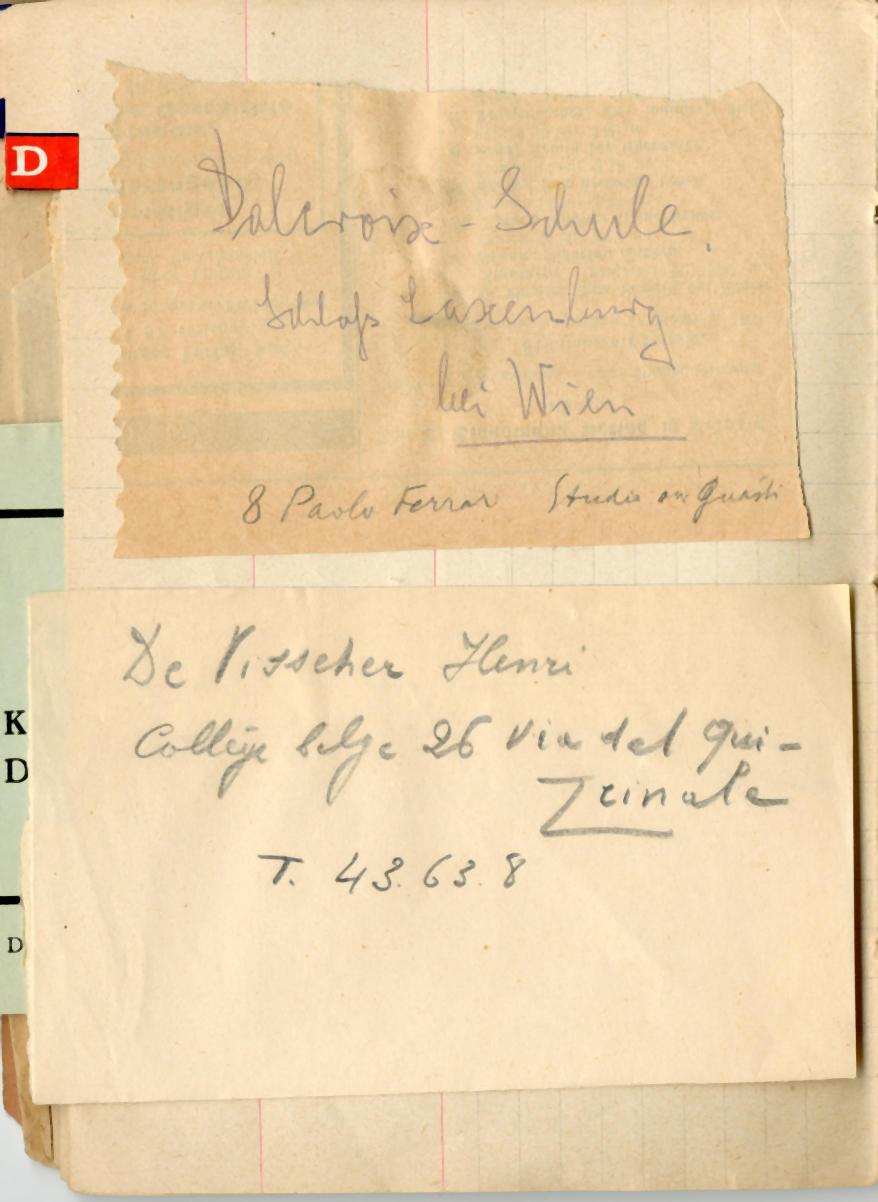 D
Dalcroze - Schule.
Schloß Laxenburg
bei Wien
8 Paolo Ferrari Studio
De Visscher Henri
Collège belge 26 Via del Qui-
rinale
T. 43.63.8
K
D
D